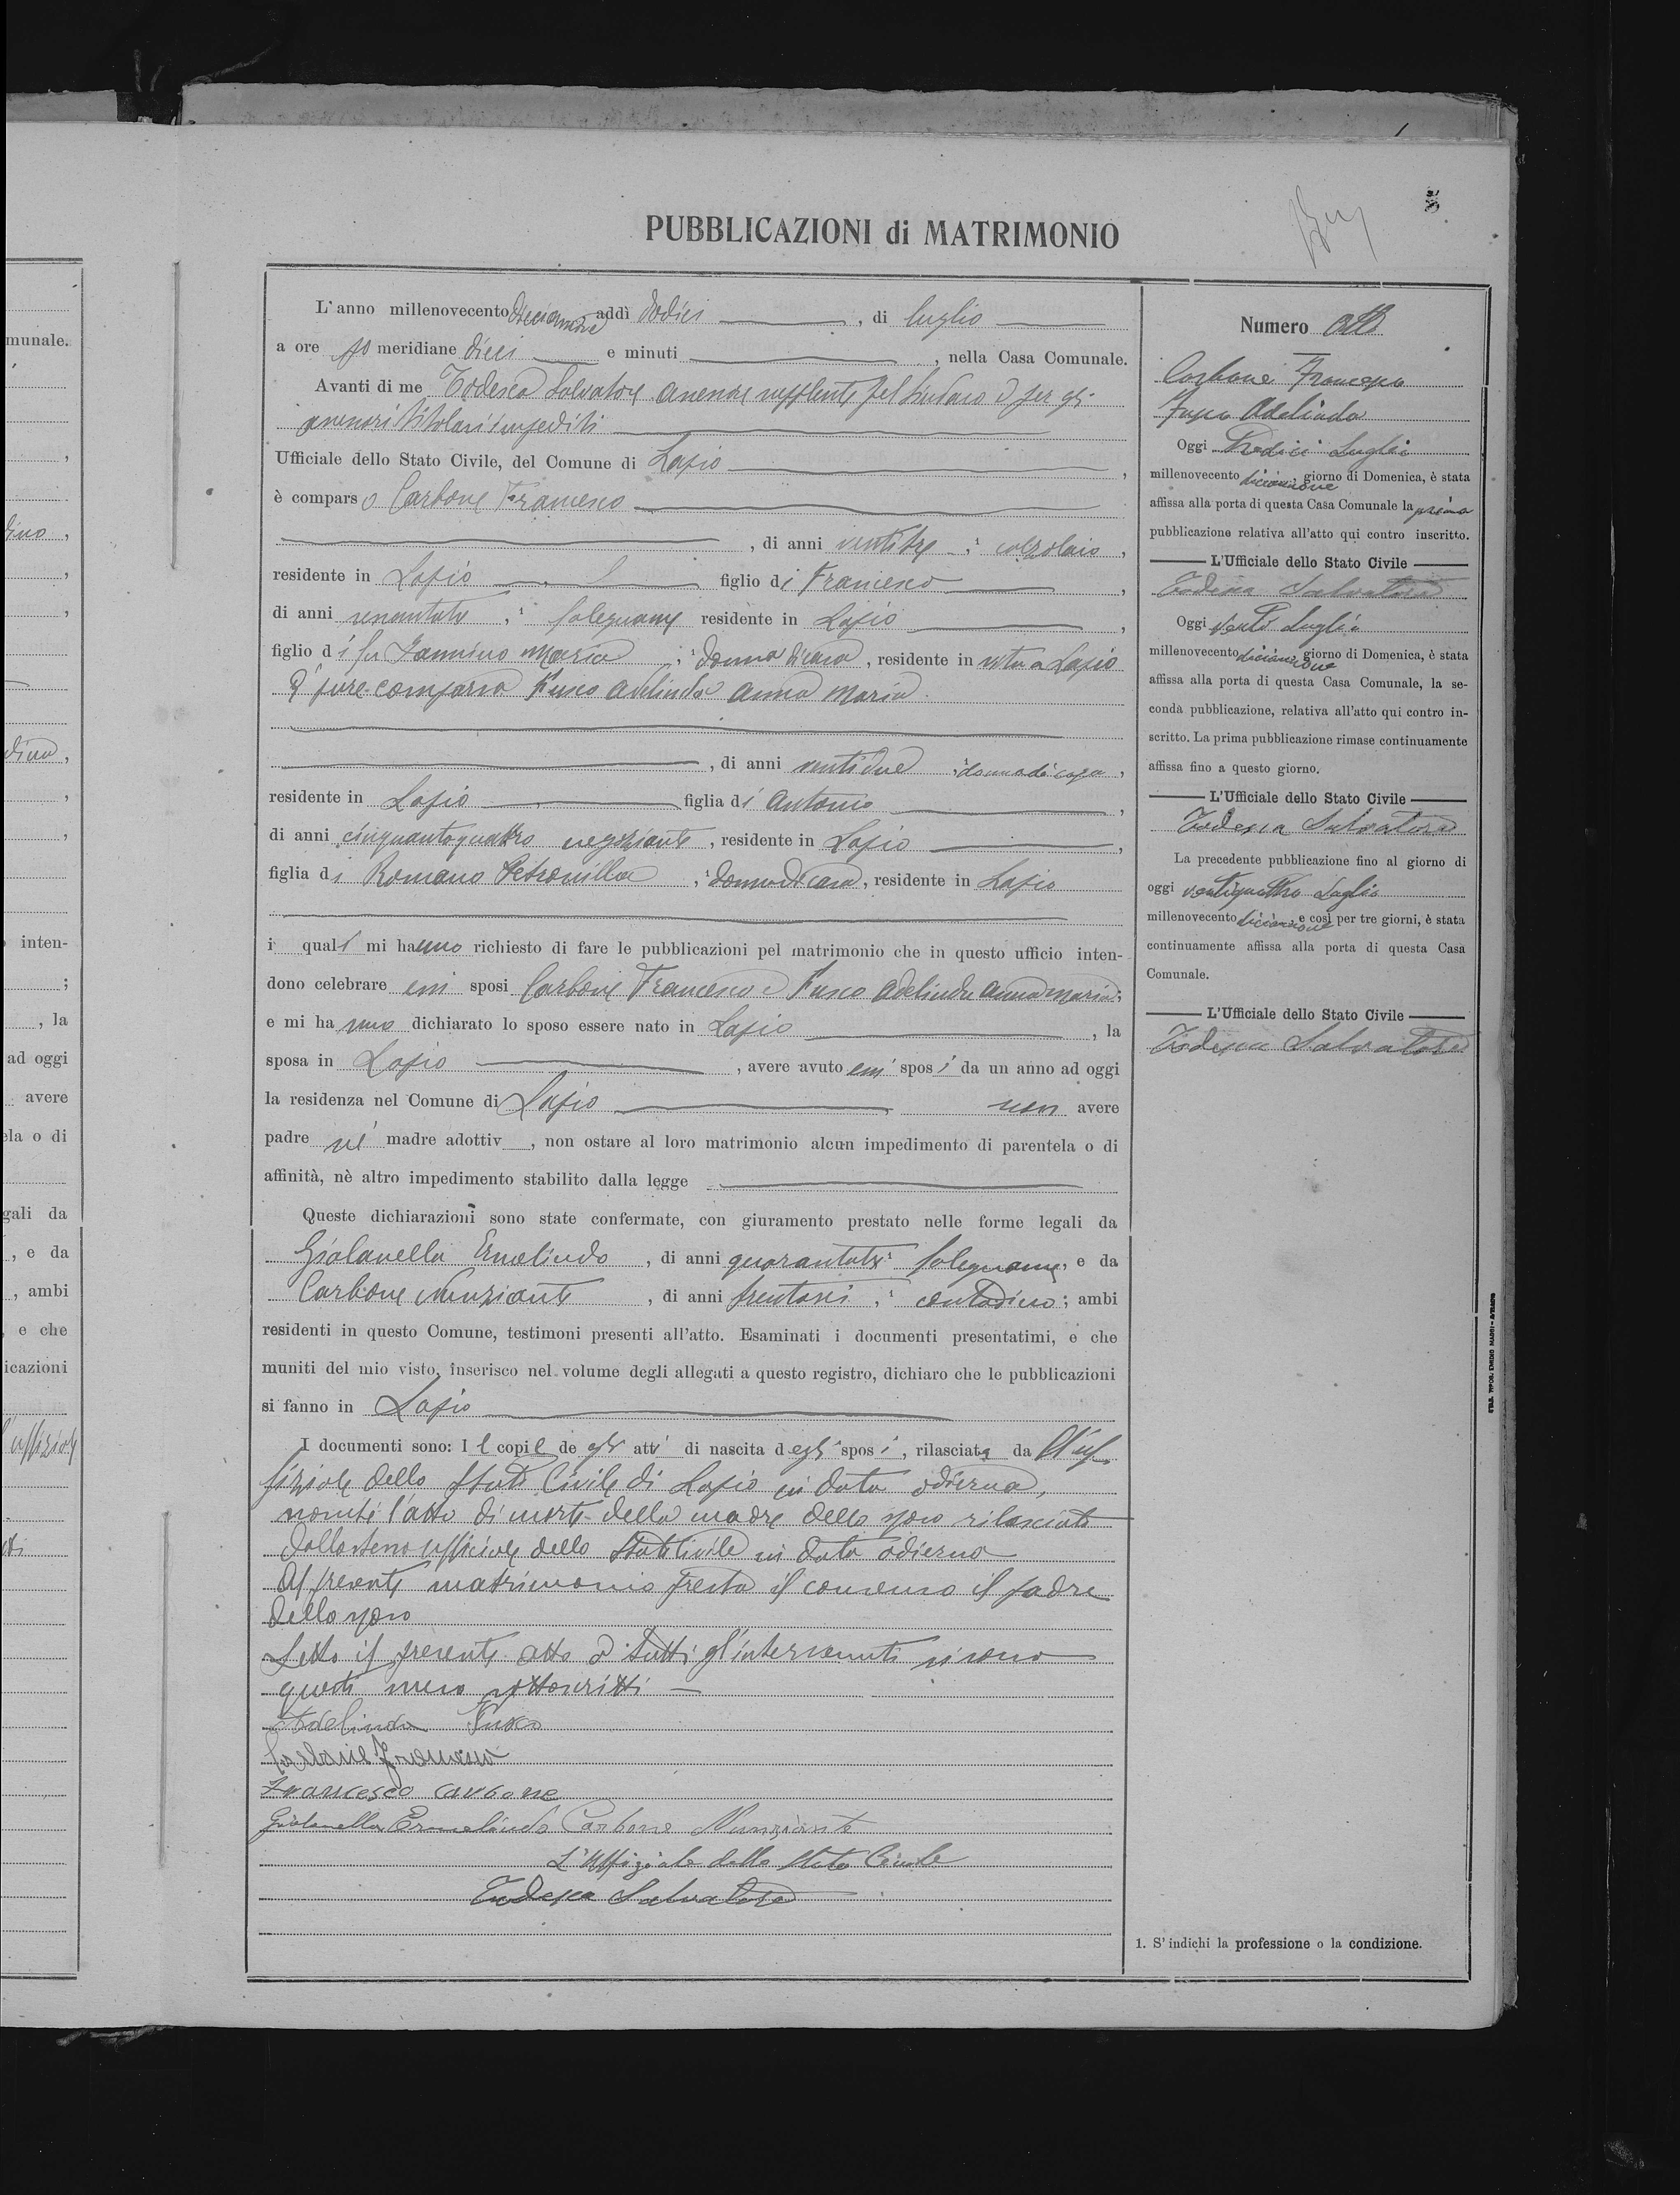 PUBBLICAZIONI di MATRIMONIO
L'anno millenovecento diciannove addì dodici, di luglio
a ore meridiane dieci e minuti, nella Casa Comunale.
Avanti di me Todesca Salvatore assessore supplente pel Sindaco e per gli
assessori titolari impediti
Ufficiale dello Stato Civile, del Comune di Lapio,
è comparso Carbone Francesco
, di anni ventitre, 1 calzolaio,
residente in Lapio figlio di Francesco,
di anni, 1 falegname residente in Lapio,
figlio di fu Iannino Maria, 1 donna di casa, residente in vita a Lapio
È pure comparsa Fusco Adelinda Anna Maria
, di anni ventidue, 1 donna di casa,
residente in Lapio figlia di Antonio,
di anni cinquantaquattro negoziante, residente in Lapio,
figlia di Romano Petronilla, 1 donna di casa, residente in Lapio
i quali mi hanno richiesto di fare le pubblicazioni pel matrimonio che in questo ufficio inten-
dono celebrare essi sposi Carbone Francesco e Fusco Adelinda Anna Maria;
e mi hanno dichiarato lo sposo essere nato in Lapio, la
sposa in Lapio, avere avuto essi sposi da un anno ad oggi
la residenza nel Comune di Lapio non avere
padre nè madre adottiv, non ostare al loro matrimonio alcun impedimento di parentela o di
affinità, nè altro impedimento stabilito dalla legge
Queste dichiarazioni sono state confermate, con giuramento prestato nelle forme legali da
Giolanella Ermelindo, di anni quarantatre 1 falegname, e da
Carbone Nunziante, di anni trentasei, 1 contadino; ambi
residenti in questo Comune, testimoni presenti all'atto. Esaminati i documenti presentatimi, e che
muniti del mio visto, inserisco nel volume degli allegati a questo registro, dichiaro che le pubblicazioni
si fanno in Lapio
I documenti sono: Le copie degli atti di nascita degli sposi, rilasciate da ll'uf
fiziale dello Stato Civile di Lapio in data odierna,
nonchè l'atto di morte della madre dello sposo rilasciato
dallo stesso ufficiale dello Stato Civile in data odierna
Al presente matrimonio presta il consenso il padre
dello sposo
Letto il presente atto a tutti gl'intervenuti si sono
questi meco sottoscritti
Adelinda Fusco
Carbone Francesco
Francesco Carbone
Giolanella Ermelindo Carbone Nunziante
L'Uffiziale dello Stato Civile
Todesca Salvatore
Numero
Carbone Francesco
Fusco Adelinda
Oggi Tredici Luglio
millenovecento diciannove giorno di Domenica, è stata
affissa alla porta di questa Casa Comunale la prima
pubblicazione relativa all'atto qui contro inscritto.
L'Ufficiale dello Stato Civile
Todesca Salvatore
Oggi Venti Luglio
millenovecento diciannove giorno di Domenica, è stata
affissa alla porta di questa Casa Comunale, la se-
conda pubblicazione, relativa all'atto qui contro in-
scritto. La prima pubblicazione rimase continuamente
affissa fino a questo giorno.
L'Ufficiale dello Stato Civile
Todesca Salvatore
La precedente pubblicazione fino al giorno di
oggi ventiquattro Luglio
millenovecento diciannove e così per tre giorni, è stata
continuamente affissa alla porta di questa Casa
Comunale.
L'Ufficiale dello Stato Civile
Todesca Salvatore
1. S'indichi la professione o la condizione.
munale.
inten-
;
, la
ad oggi
avere
ela o di
gali da
, e da
, ambi
, e che
icazioni